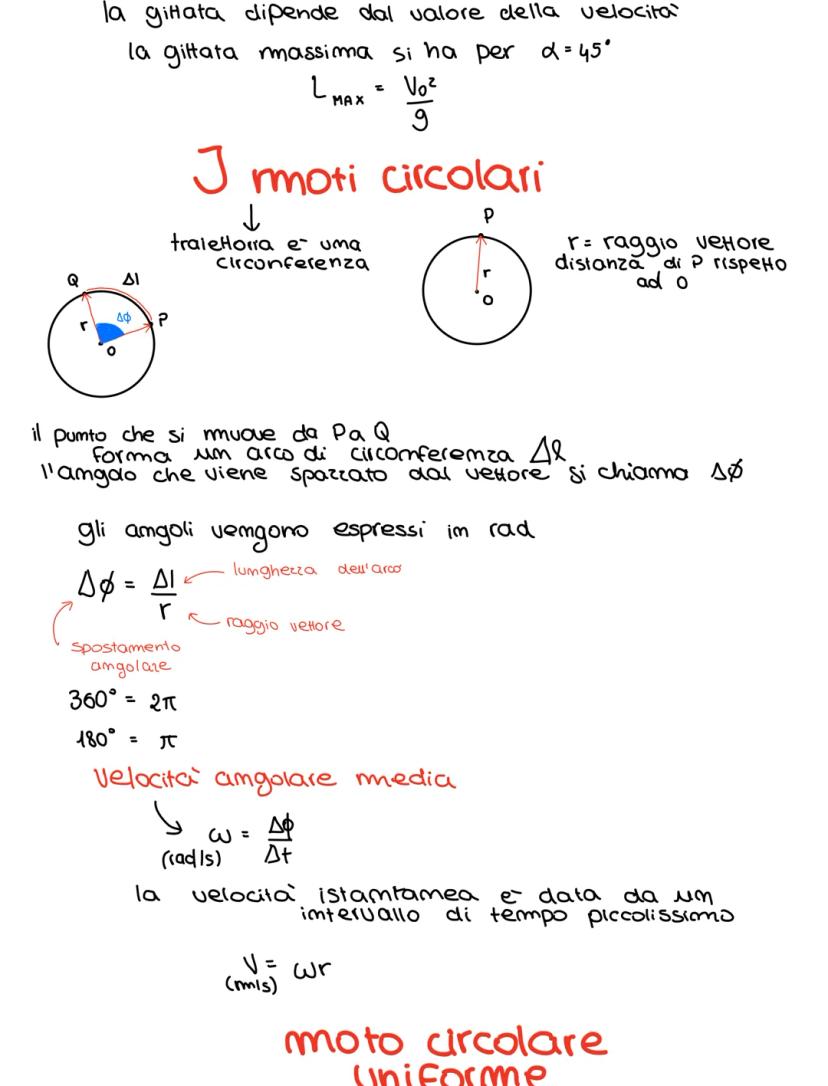 la gittata dipende dal valore della velocità
la gittata massima si ha per α = 45°
L MAX = V₀² / g
I moti circolari
↓
traiettoria è una
circonferenza
P
r
O
r = raggio vettore
distanza di P rispetto
ad O
Q Δl
r Δϕ P
O
il punto che si muove da P a Q
forma un arco di circonferenza Δl
l'angolo che viene spazzato dal vettore si chiama Δϕ
gli angoli vengono espressi in rad
Δϕ = Δl / r
lunghezza dell'arco
raggio vettore
spostamento
angolare
360° = 2π
180° = π
velocità angolare media
ω = Δϕ / Δt
(rad/s)
la velocità istantanea è data da un
intervallo di tempo piccolissimo
V = ωr
(m/s)
moto circolare
uniforme